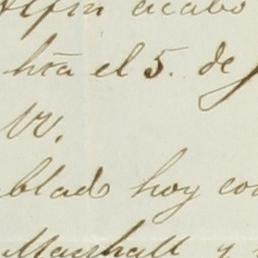 Alfin acabo
hta el 5. de
VV.
blado hoy co
Marshall y